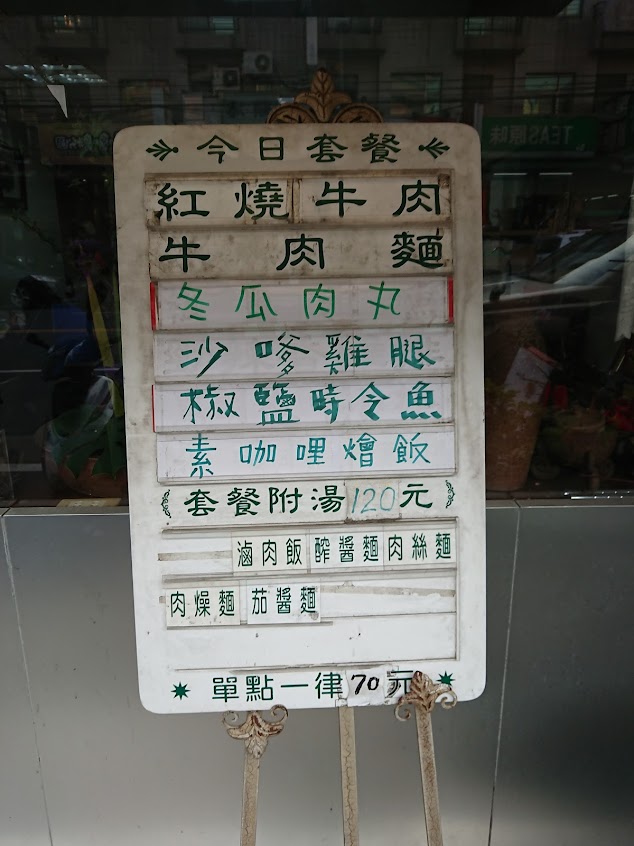 今日套餐
紅燒牛肉
牛肉麵
冬瓜肉丸
沙嗲雞腿
椒鹽時令魚
素咖哩燴飯
套餐附湯120元
滷肉飯 酢醬麵 肉絲麵
肉燥麵 茄醬麵
單點一律70元
TEAS原味